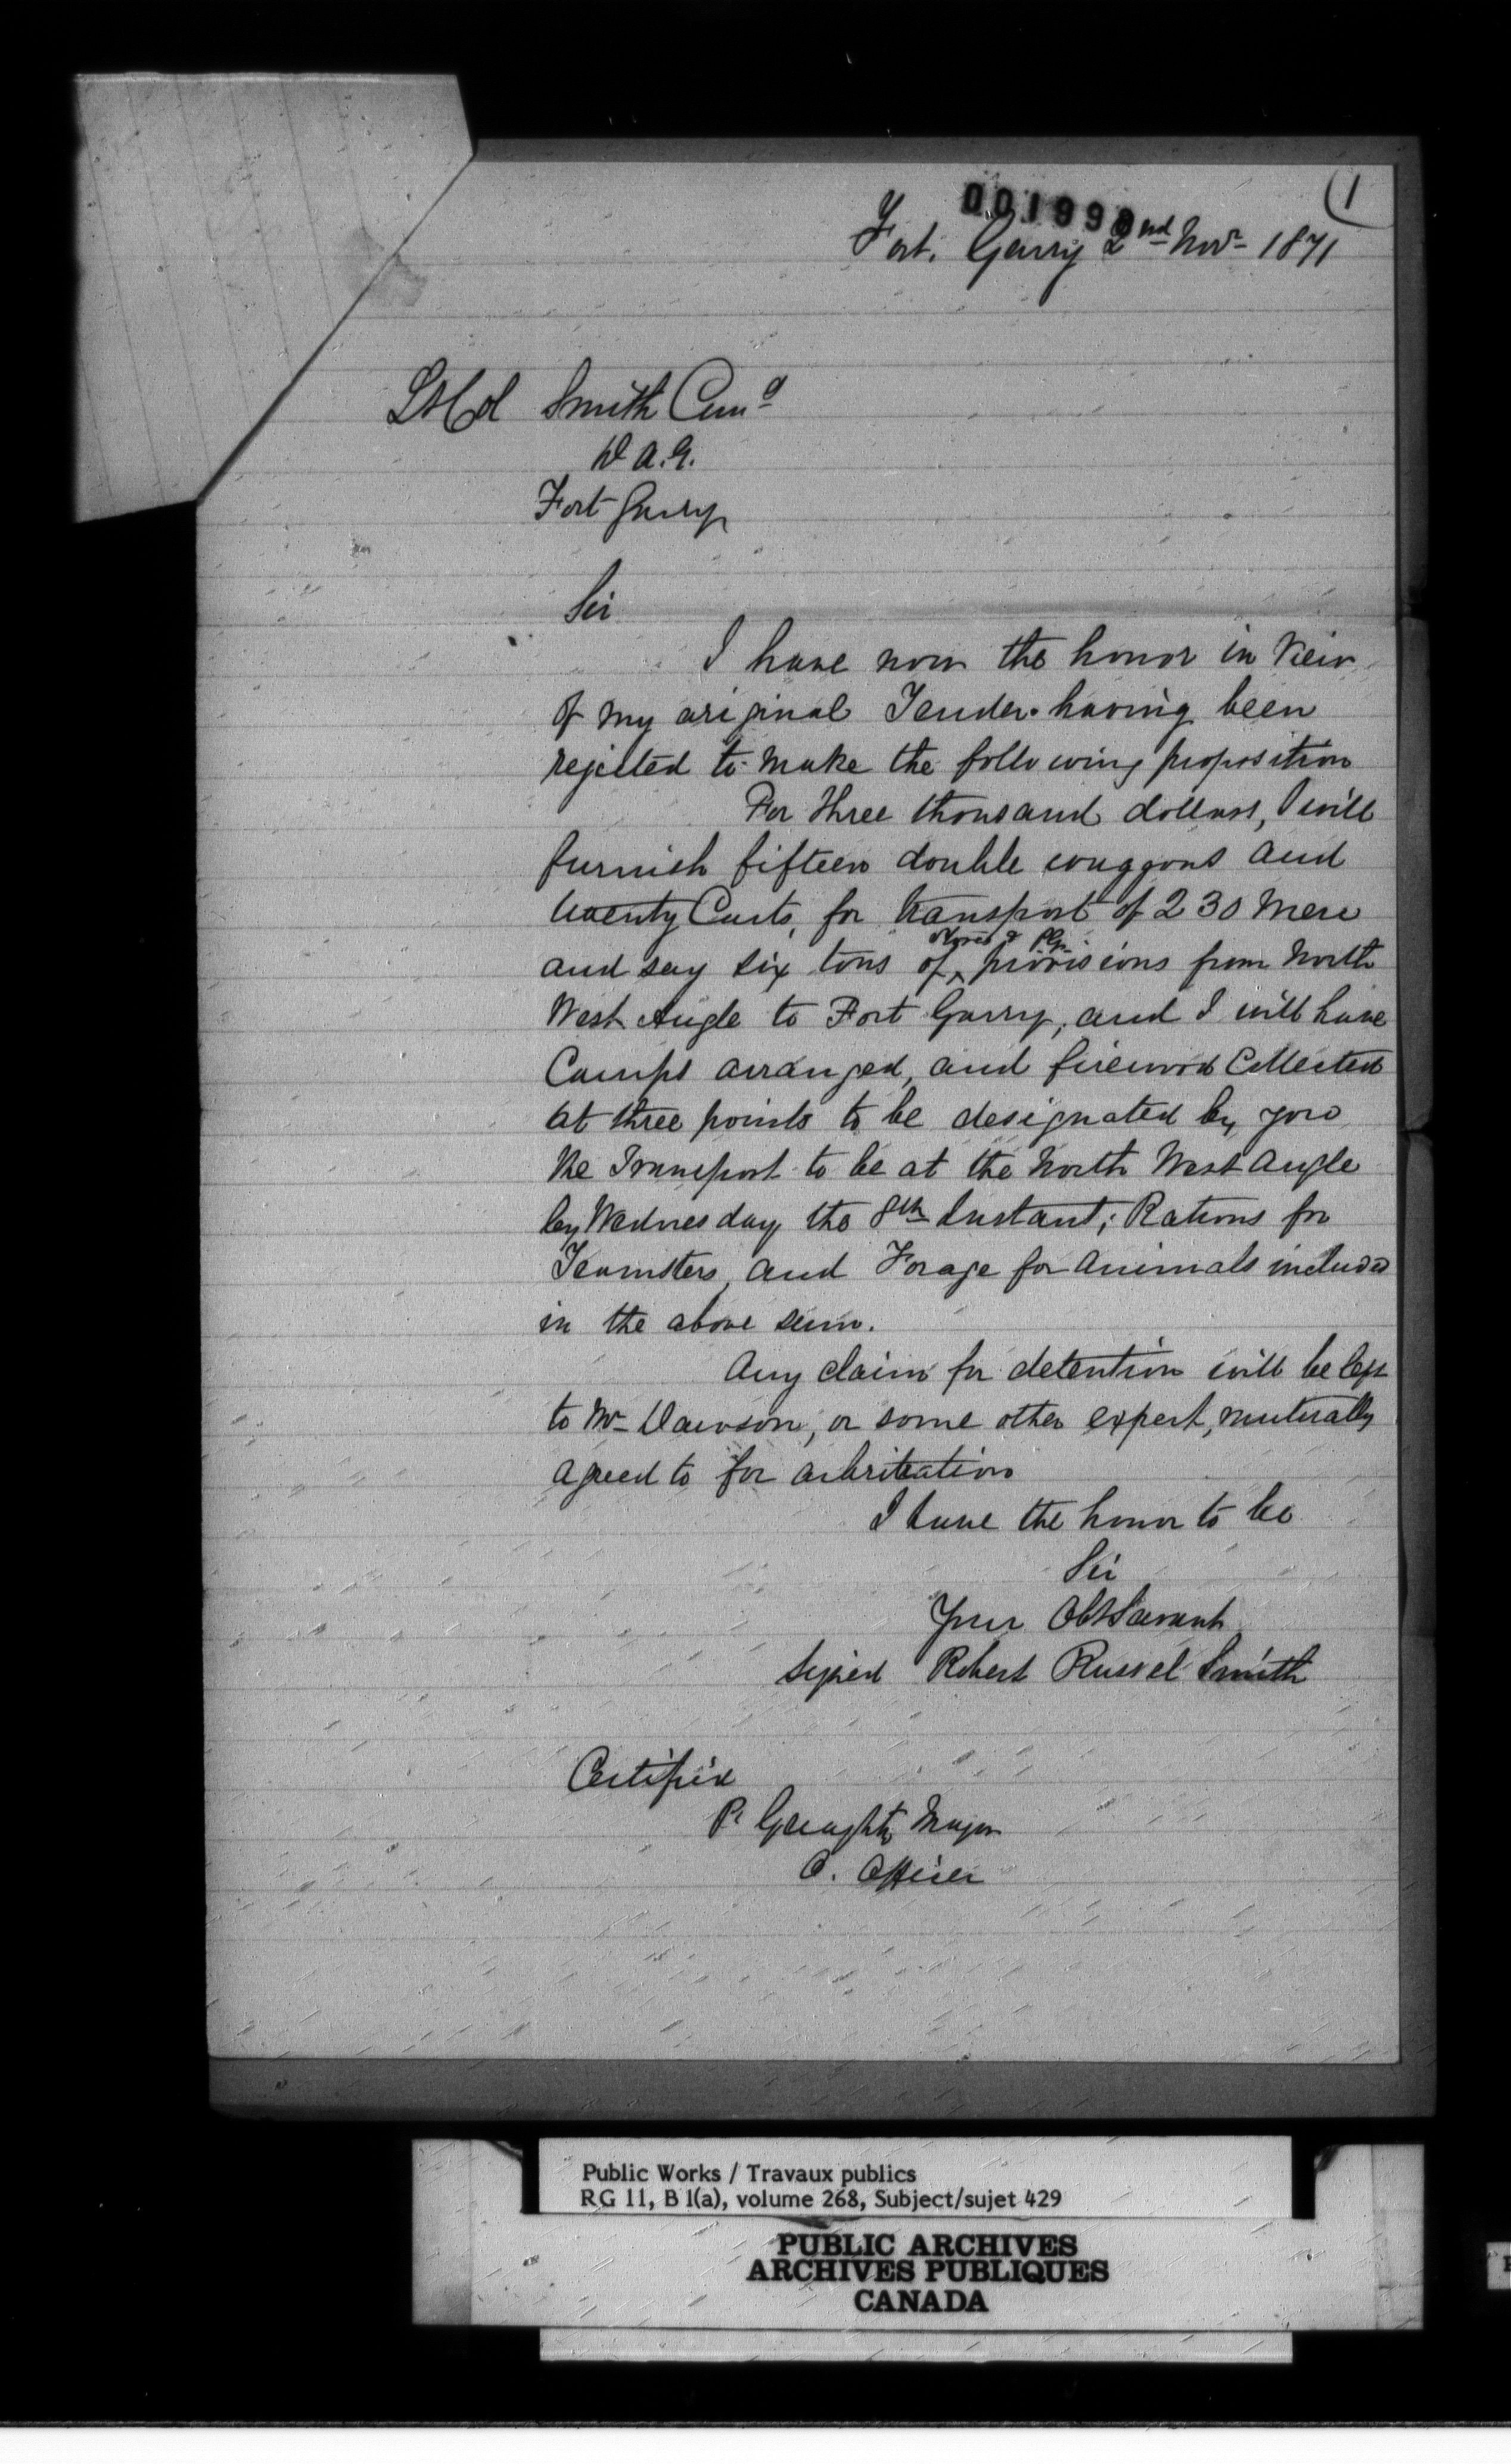 (1
001998
Fort Garry 2nd Novr 1871
Lt Col Smith Comd
D A. G.
Fort Garry
Sir
I have now the honor in View
of my original Tender having been
rejected to make the following proposition
For three thousand dollars, I will
furnish fifteen double waggons and
twenty Carts, for transport of 230 Men
stores &
and say six tons of provisions from North
West Angle to Fort Garry, and I will have
Camps arranged, and firewood Collected
at three points to be designated by you
the Transport to be at the North West Angle
by Wednesday the 8th Instant; Rations for
Teamsters, and Forage for Animals included
in the above sum.
Any claim for detention will be left
to Mr Dawson, or some other expert, mutually
agreed to for arbritration
I have the honor to be
Sir
Your Obt Servant
Signed Robert Russel Smith
Certified
P. Major
C. Officer
Public Works / Travaux publics
RG 11, B 1(a), volume 268, Subject/sujet 429
PUBLIC ARCHIVES
ARCHIVES PUBLIQUES
CANADA